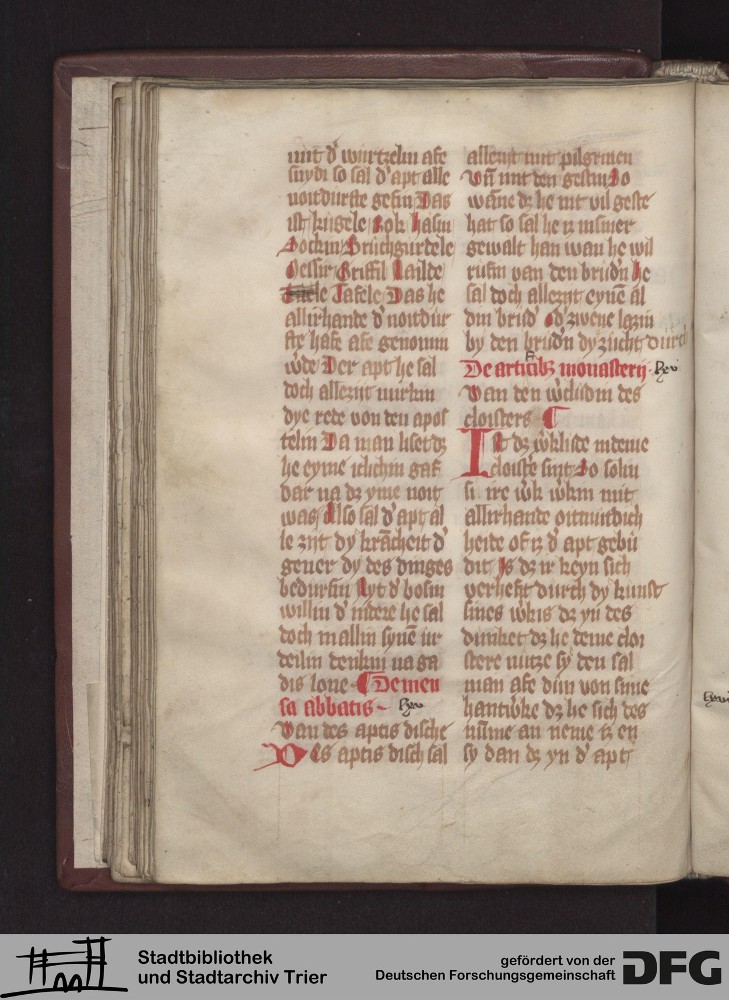 mit d' wurtzelin afe
snydi so sal d' apt alle
notdurfte gebin Das
ist kugele Rok hasin
Sockin Bruchgurdele
Messir Griffil Nailde
Tafele Das he
allirhande d' notdur
fte habe afe genomin
w'de Der apt he sal
doch allezijt mirkin
dye rede von den apos
telin Da man liset dz
he eyme iclichin gaf
dar na dz yme noit
was Also sal d' apt al
le zijt dy krācheit d'
gener dy des dinges
bedurfin Nyt d' bosin
willin d' nidere he sal
doch in allin synē ur
deilin denkin na ga
dis lone De men
sa abbatis lvi
Van des aptis dische
Des aptis disch sal
allezijt mit pilgrimen
Vn̄ mit den gestin So
wāne dz he nit vil geste
hat so sal he iz in siner
gewalt han wan he wil
rufin van den brud'n he
sal doch allezijt eynē al
din brud' od' zwene lazin
by den brud'n dy zucht durch
De artificibꝫ monasterij lvii
Van den w'cludin des
cloisters
Ist dz w'klude in deme
cloist'e sint So solin
si ire w'k w'kin mit
allirhande oitmudich
heide of iz d' apt gebu
dit Is dz ir keyn sich
verhebit durch dy kunst
sines w'kis dz yn des
dunket dz he deme cloi
stere nutze sy den sal
man afe dun von sime
hantw'ke dz he sich des
nūme an neme iz en
sy dan dz yn d' apt
Stadtbibliothek
und Stadtarchiv Trier
gefördert von der
Deutschen Forschungsgemeinschaft
DFG